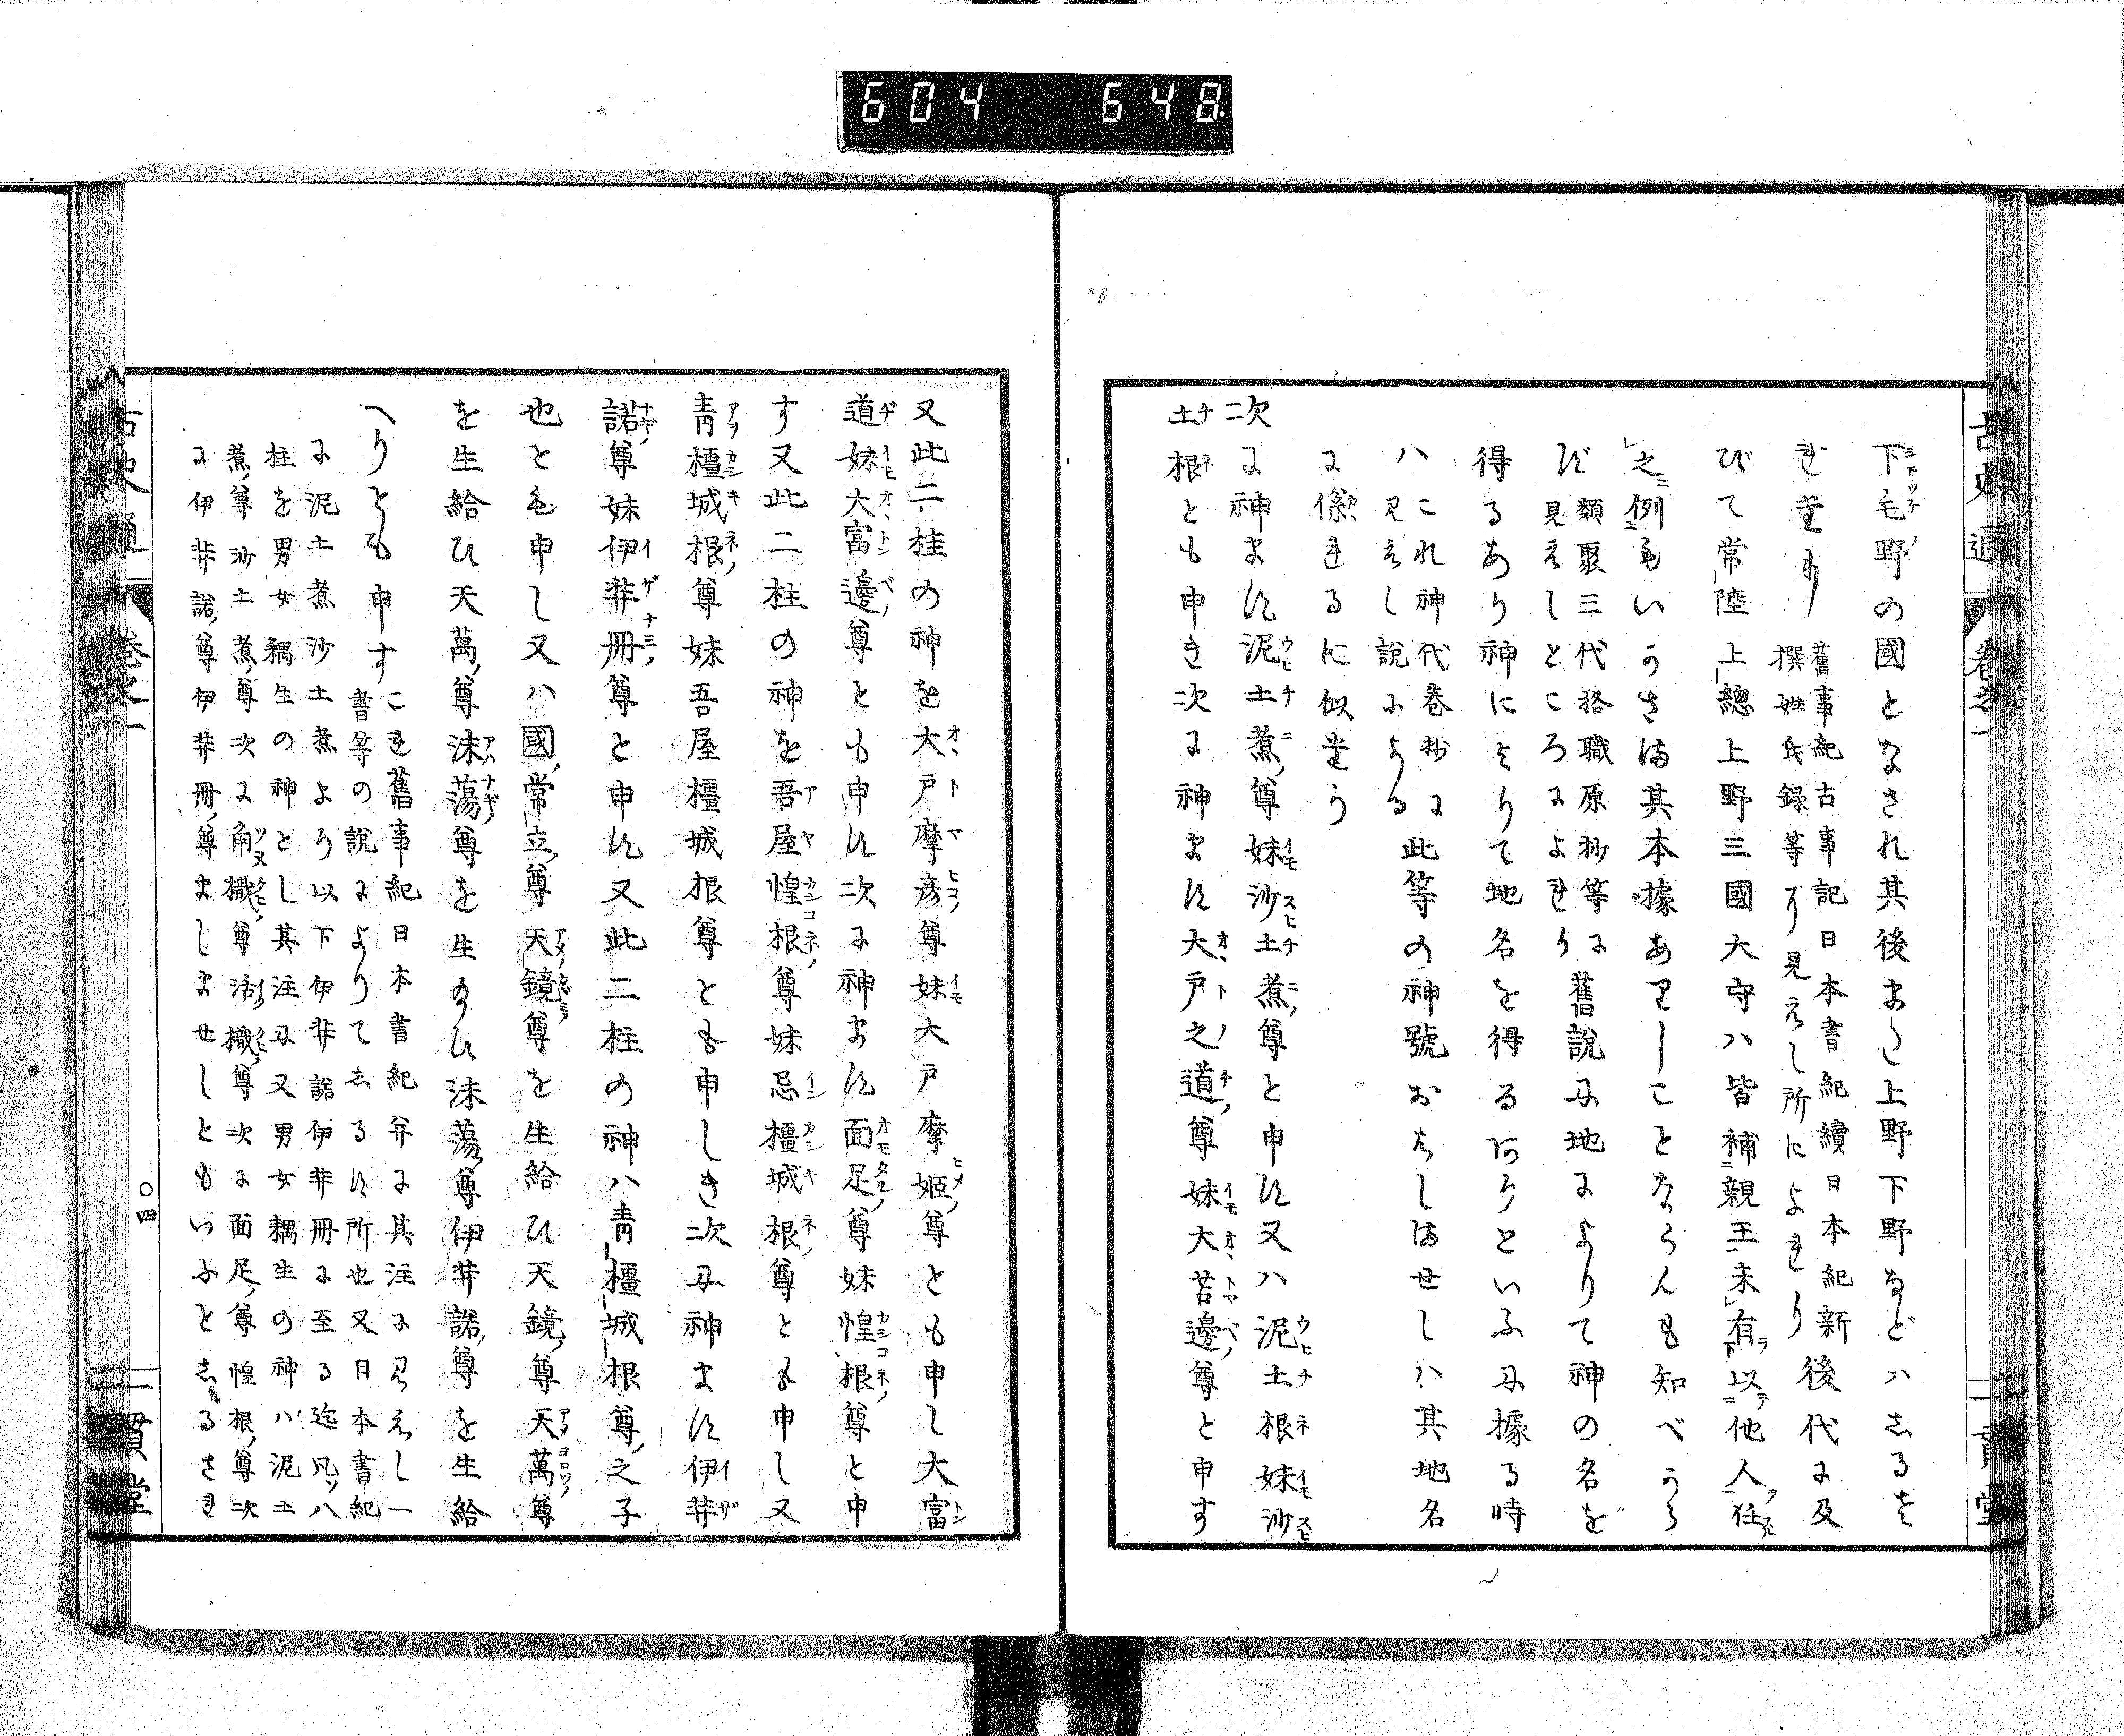 604 648
古史通 卷之一 一貫堂
下毛野の國となされ其後また上野下野などハしるせ
れたり 舊事紀古事記日本書紀續日本紀新
撰姓氏録等に見えし所によれり 後代に及
びて常陸上總上野三國大守ハ皆補親王未有以他人任
之例もいかさま其本據ありしことならんも知べから
ず 類聚三代格職原抄等に
見えしところによれり 舊説に地によりて神の名を
得るあり神によりて地名を得るありといふに據る時
ハ これ神代卷抄に
見えし説による 此等の神號おはしませしハ其地名
に係れるに似たり
次に神ます泥土煮尊妹沙土煮尊と申す又ハ泥土根妹沙
土根とも申き次に神ます大戸之道尊妹大苫邊尊と申す
又此二柱の神を大戸摩彦尊妹大戸摩姫尊とも申し大富
道妹大富邊尊とも申す次に神ます面足尊妹惶根尊と申
す又此二柱の神を吾屋惶根尊妹忌橿城根尊とも申し又
青橿城根尊妹吾屋橿城根尊とも申しき次に神ます伊弉
諾尊妹伊弉冊尊と申す又此二柱の神ハ青橿城根尊之子
也とも申し又ハ國常立尊天鏡尊を生給ひ天鏡尊天萬尊
を生給ひ天萬尊沫蕩尊を生給ひ沫蕩尊伊弉諾尊を生給
へりとも申す これ舊事紀日本書紀并に其注に見えし一
書等の説によりてしるす所也又日本書紀
に泥土煮沙土煮より以下伊弉諾伊弉冊に至る迄凡ソ八
柱を男女耦生の神とし其注に又男女耦生の神ハ泥土
煮尊沙土煮尊次に角樴尊活樴尊次に面足尊惶根尊次
に伊弉諾尊伊弉冊尊ましませしともいふとしるされ
古史通 卷之一 〇四 一貫堂